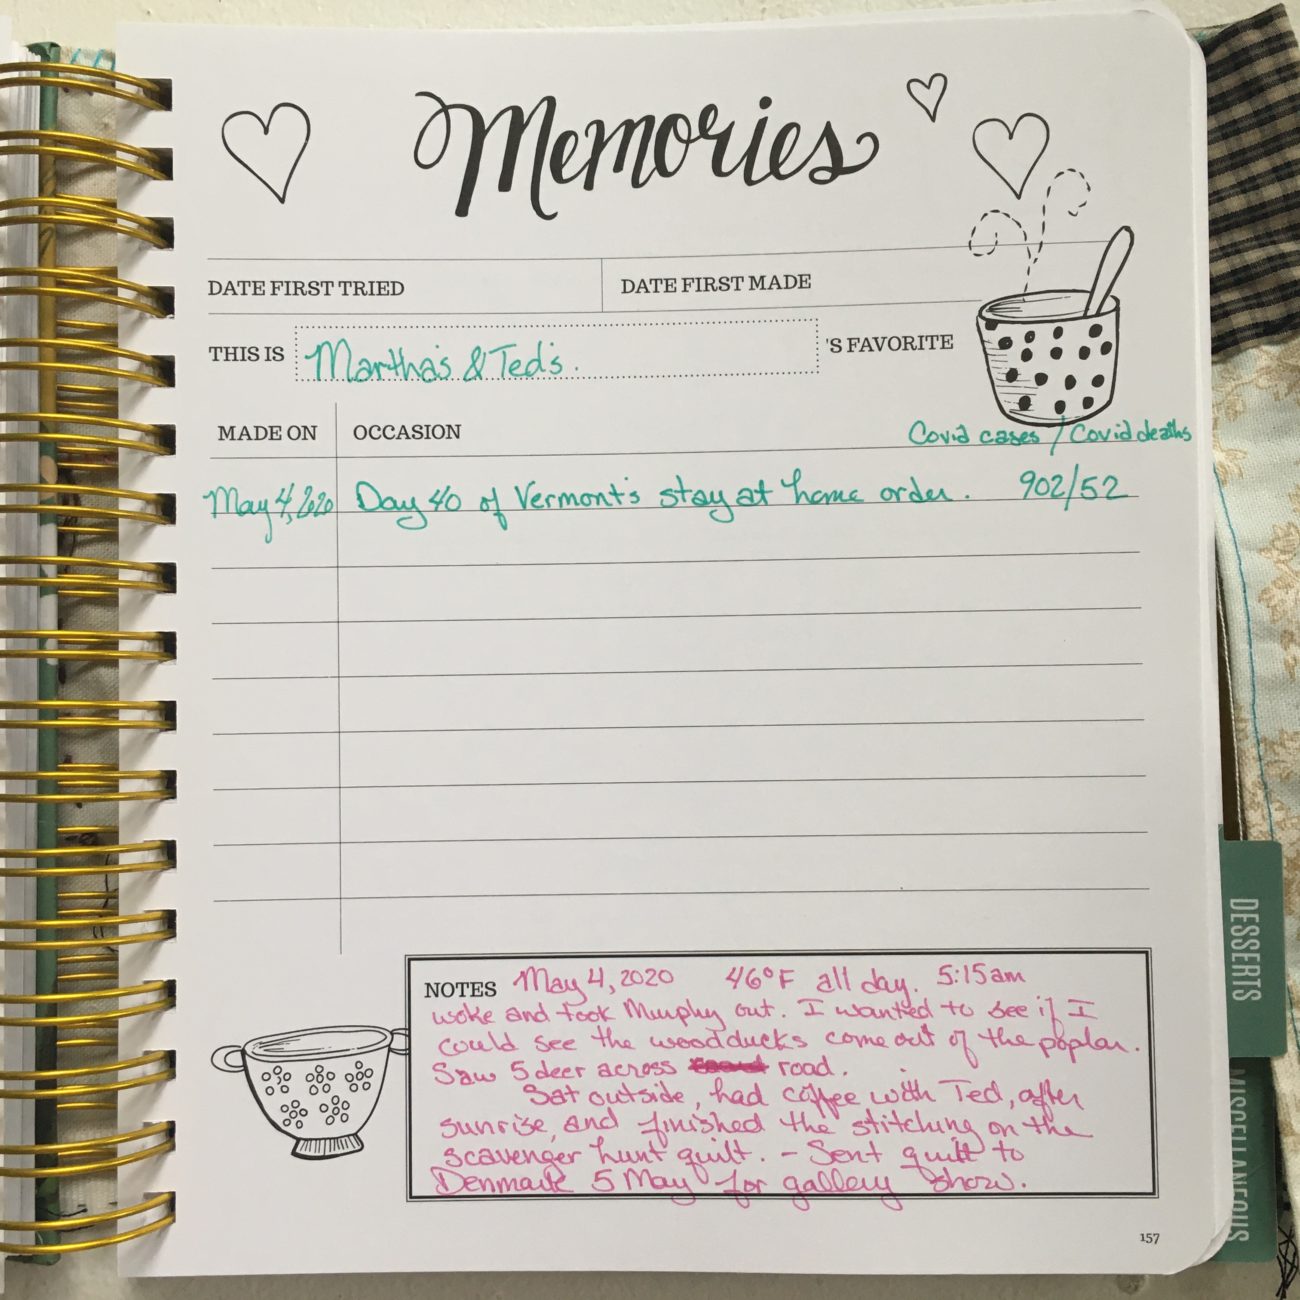 Memories
DATE FIRST TRIED
DATE FIRST MADE
THIS IS Martha's & Ted's. 'S FAVORITE
MADE ON OCCASION
Covid cases / Covid deaths
May 4, 2020 Day 40 of Vermont's stay at home order. 902/52
NOTES May 4, 2020 46°F all day. 5:15am
woke and took Murphy out. I wanted to see if I
could see the woodducks come out of the poplar.
Saw 5 deer across road.
Sat outside, had coffee with Ted, after
sunrise, and finished the stitching on the
scavenger hunt quilt. - Sent quilt to
Denmark 5 May for gallery show.
157
DESSERTS
MISCELLANEOUS